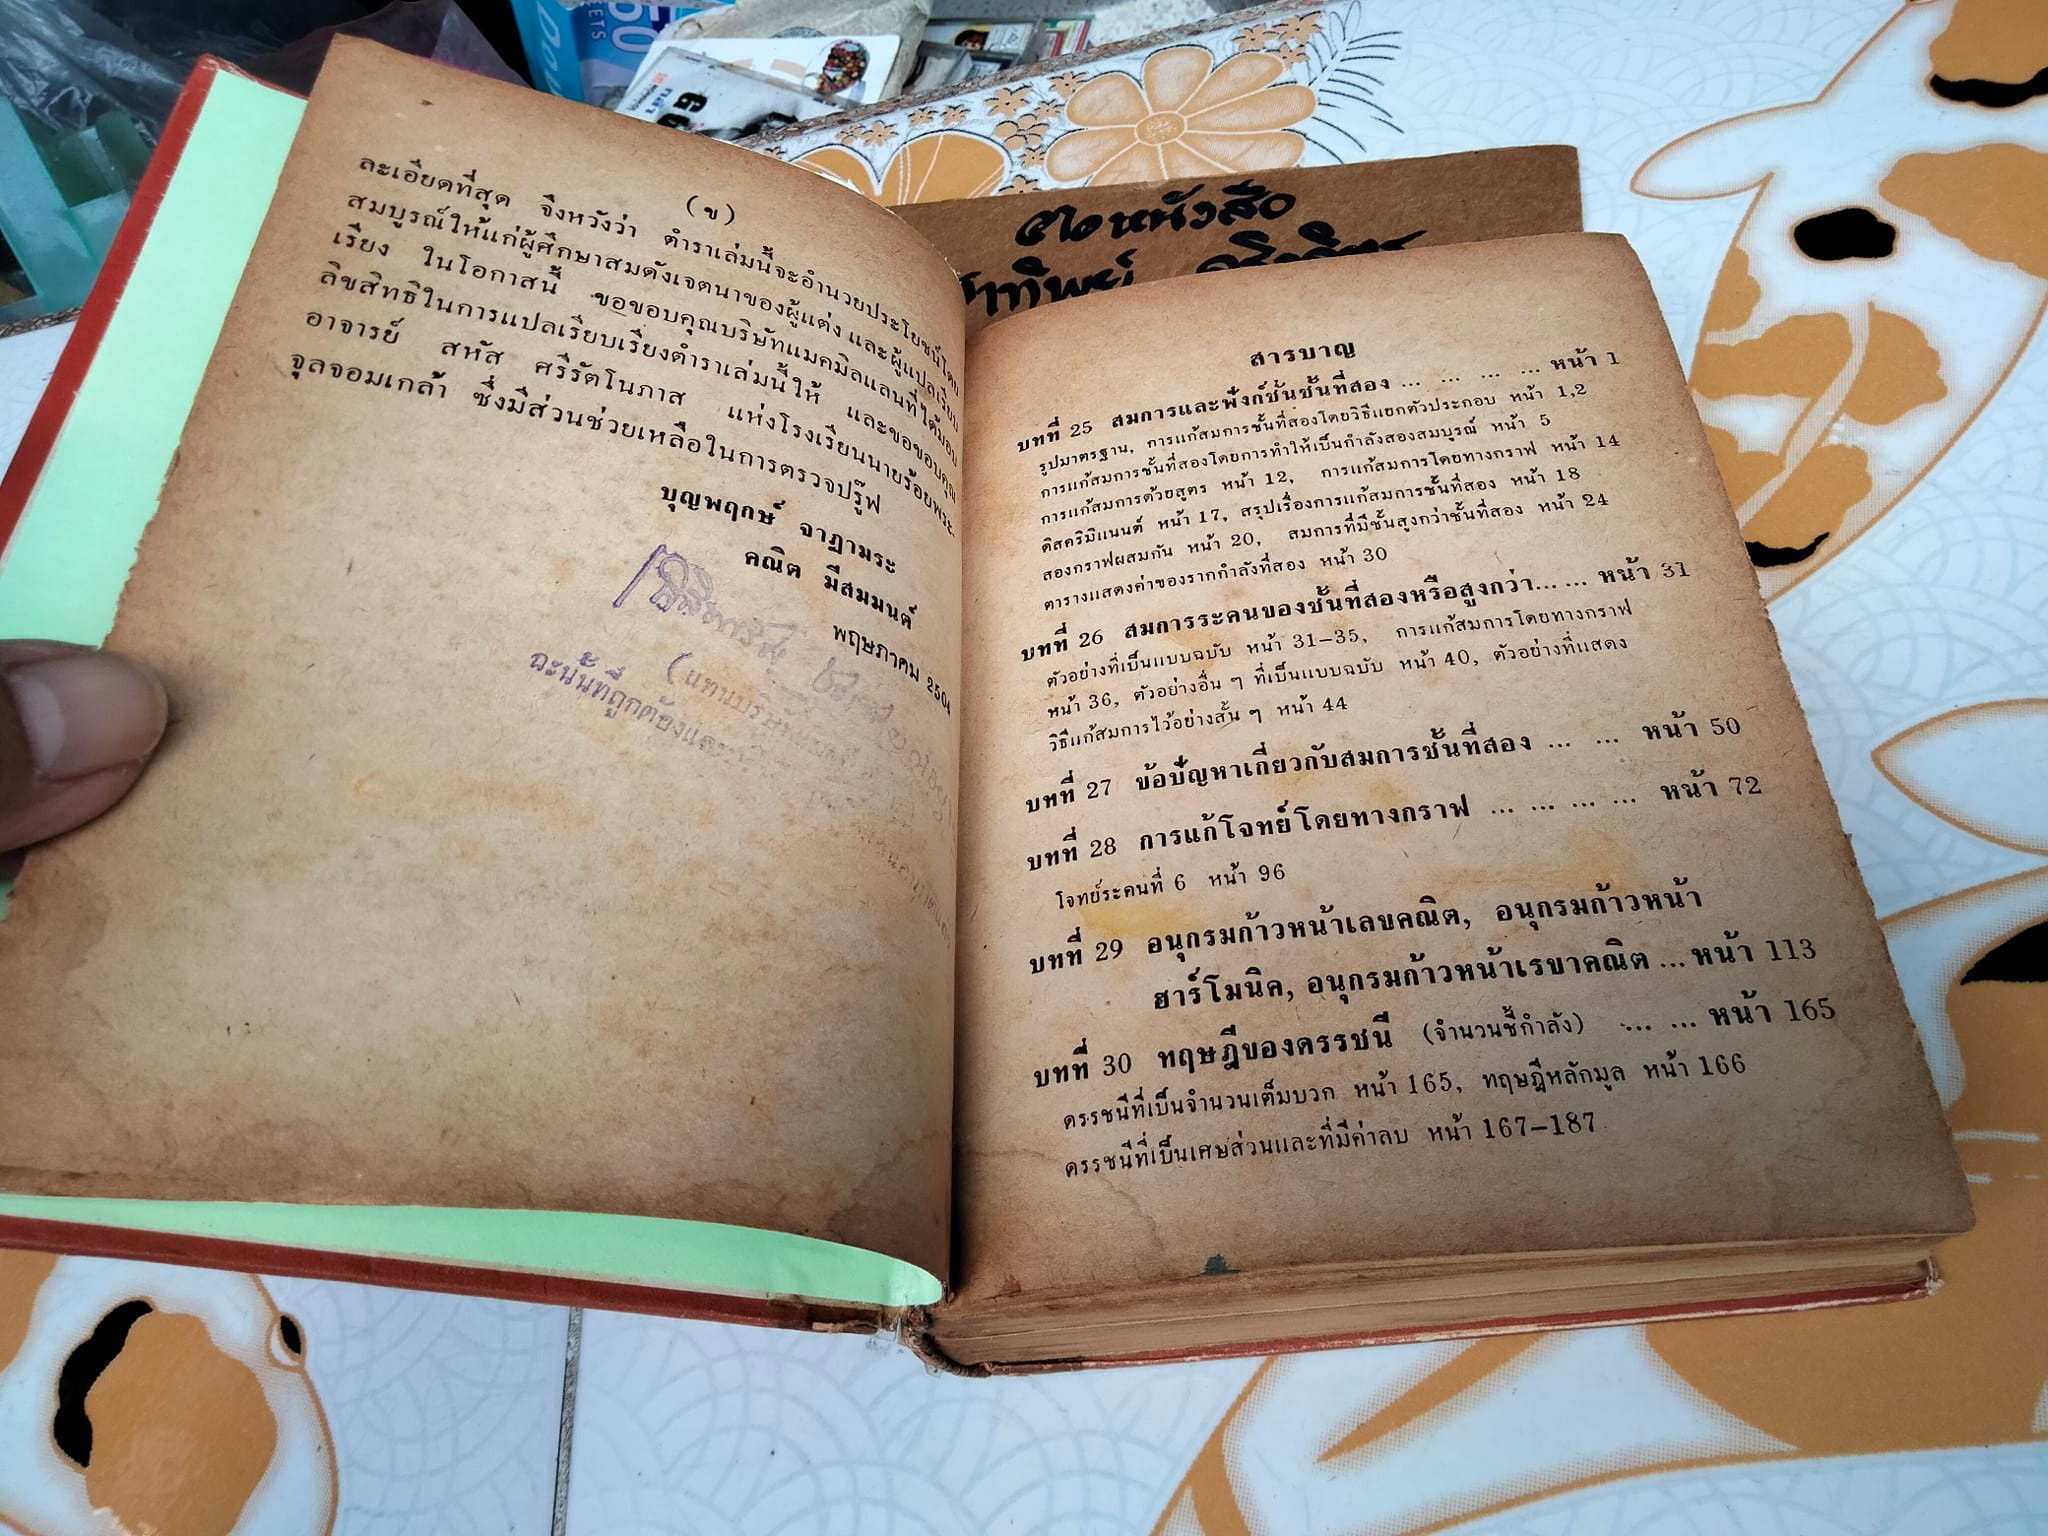 (ข)
ละเอียดที่สุด จึงหวังว่า ตำราเล่มนี้จะอำนวยประโยชน์โดย
สมบูรณ์ให้แก่ผู้ศึกษาสมดังเจตนาของผู้แต่ง และผู้แปลเรียบ
เรียง ในโอกาสนี้ ขอขอบคุณบริษัทแมคมิลแลนที่ได้มอบ
ลิขสิทธิในการแปลเรียบเรียงตำราเล่มนี้ให้ และขอขอบคุณ
อาจารย์ สหัส ศรีรัตโนภาส แห่งโรงเรียนนายร้อยพระ-
จุลจอมเกล้า ซึ่งมีส่วนช่วยเหลือในการตรวจปรู๊ฟ
บุญพฤกษ์ จาฏามระ
คณิต มีสมมนต์
พฤษภาคม 2504
ฉะนั้นที่ถูกต้องและ
ขอหนังสือ
สารบาญ
บทที่ 25 สมการและฟังก์ชั่นชั้นที่สอง ... ... ... ... หน้า 1
รูปมาตรฐาน, การแก้สมการชั้นที่สองโดยวิธีแยกตัวประกอบ หน้า 1,2
การแก้สมการชั้นที่สองโดยการทำให้เป็นกำลังสองสมบูรณ์ หน้า 5
การแก้สมการด้วยสูตร หน้า 12, การแก้สมการโดยทางกราฟ หน้า 14
ดิสคริมิแนนต์ หน้า 17, สรุปเรื่องการแก้สมการชั้นที่สอง หน้า 18
สองกราฟผสมกัน หน้า 20, สมการที่มีชั้นสูงกว่าชั้นที่สอง หน้า 24
ตารางแสดงค่าของรากกำลังที่สอง หน้า 30
บทที่ 26 สมการระคนของชั้นที่สองหรือสูงกว่า... ... หน้า 31
ตัวอย่างที่เป็นแบบฉบับ หน้า 31–35, การแก้สมการโดยทางกราฟ
หน้า 36, ตัวอย่างอื่น ๆ ที่เป็นแบบฉบับ หน้า 40, ตัวอย่างที่แสดง
วิธีแก้สมการไว้อย่างสั้น ๆ หน้า 44
บทที่ 27 ข้อปัญหาเกี่ยวกับสมการชั้นที่สอง ... ... หน้า 50
บทที่ 28 การแก้โจทย์โดยทางกราฟ ... ... ... ... หน้า 72
โจทย์ระคนที่ 6 หน้า 96
บทที่ 29 อนุกรมก้าวหน้าเลขคณิต, อนุกรมก้าวหน้า
ฮาร์โมนิค, อนุกรมก้าวหน้าเรขาคณิต ... หน้า 113
บทที่ 30 ทฤษฎีของดรรชนี (จำนวนชี้กำลัง) ... ... หน้า 165
ดรรชนีที่เป็นจำนวนเต็มบวก หน้า 165, ทฤษฎีหลักมูล หน้า 166
ดรรชนีที่เป็นเศษส่วนและที่มีค่าลบ หน้า 167–187